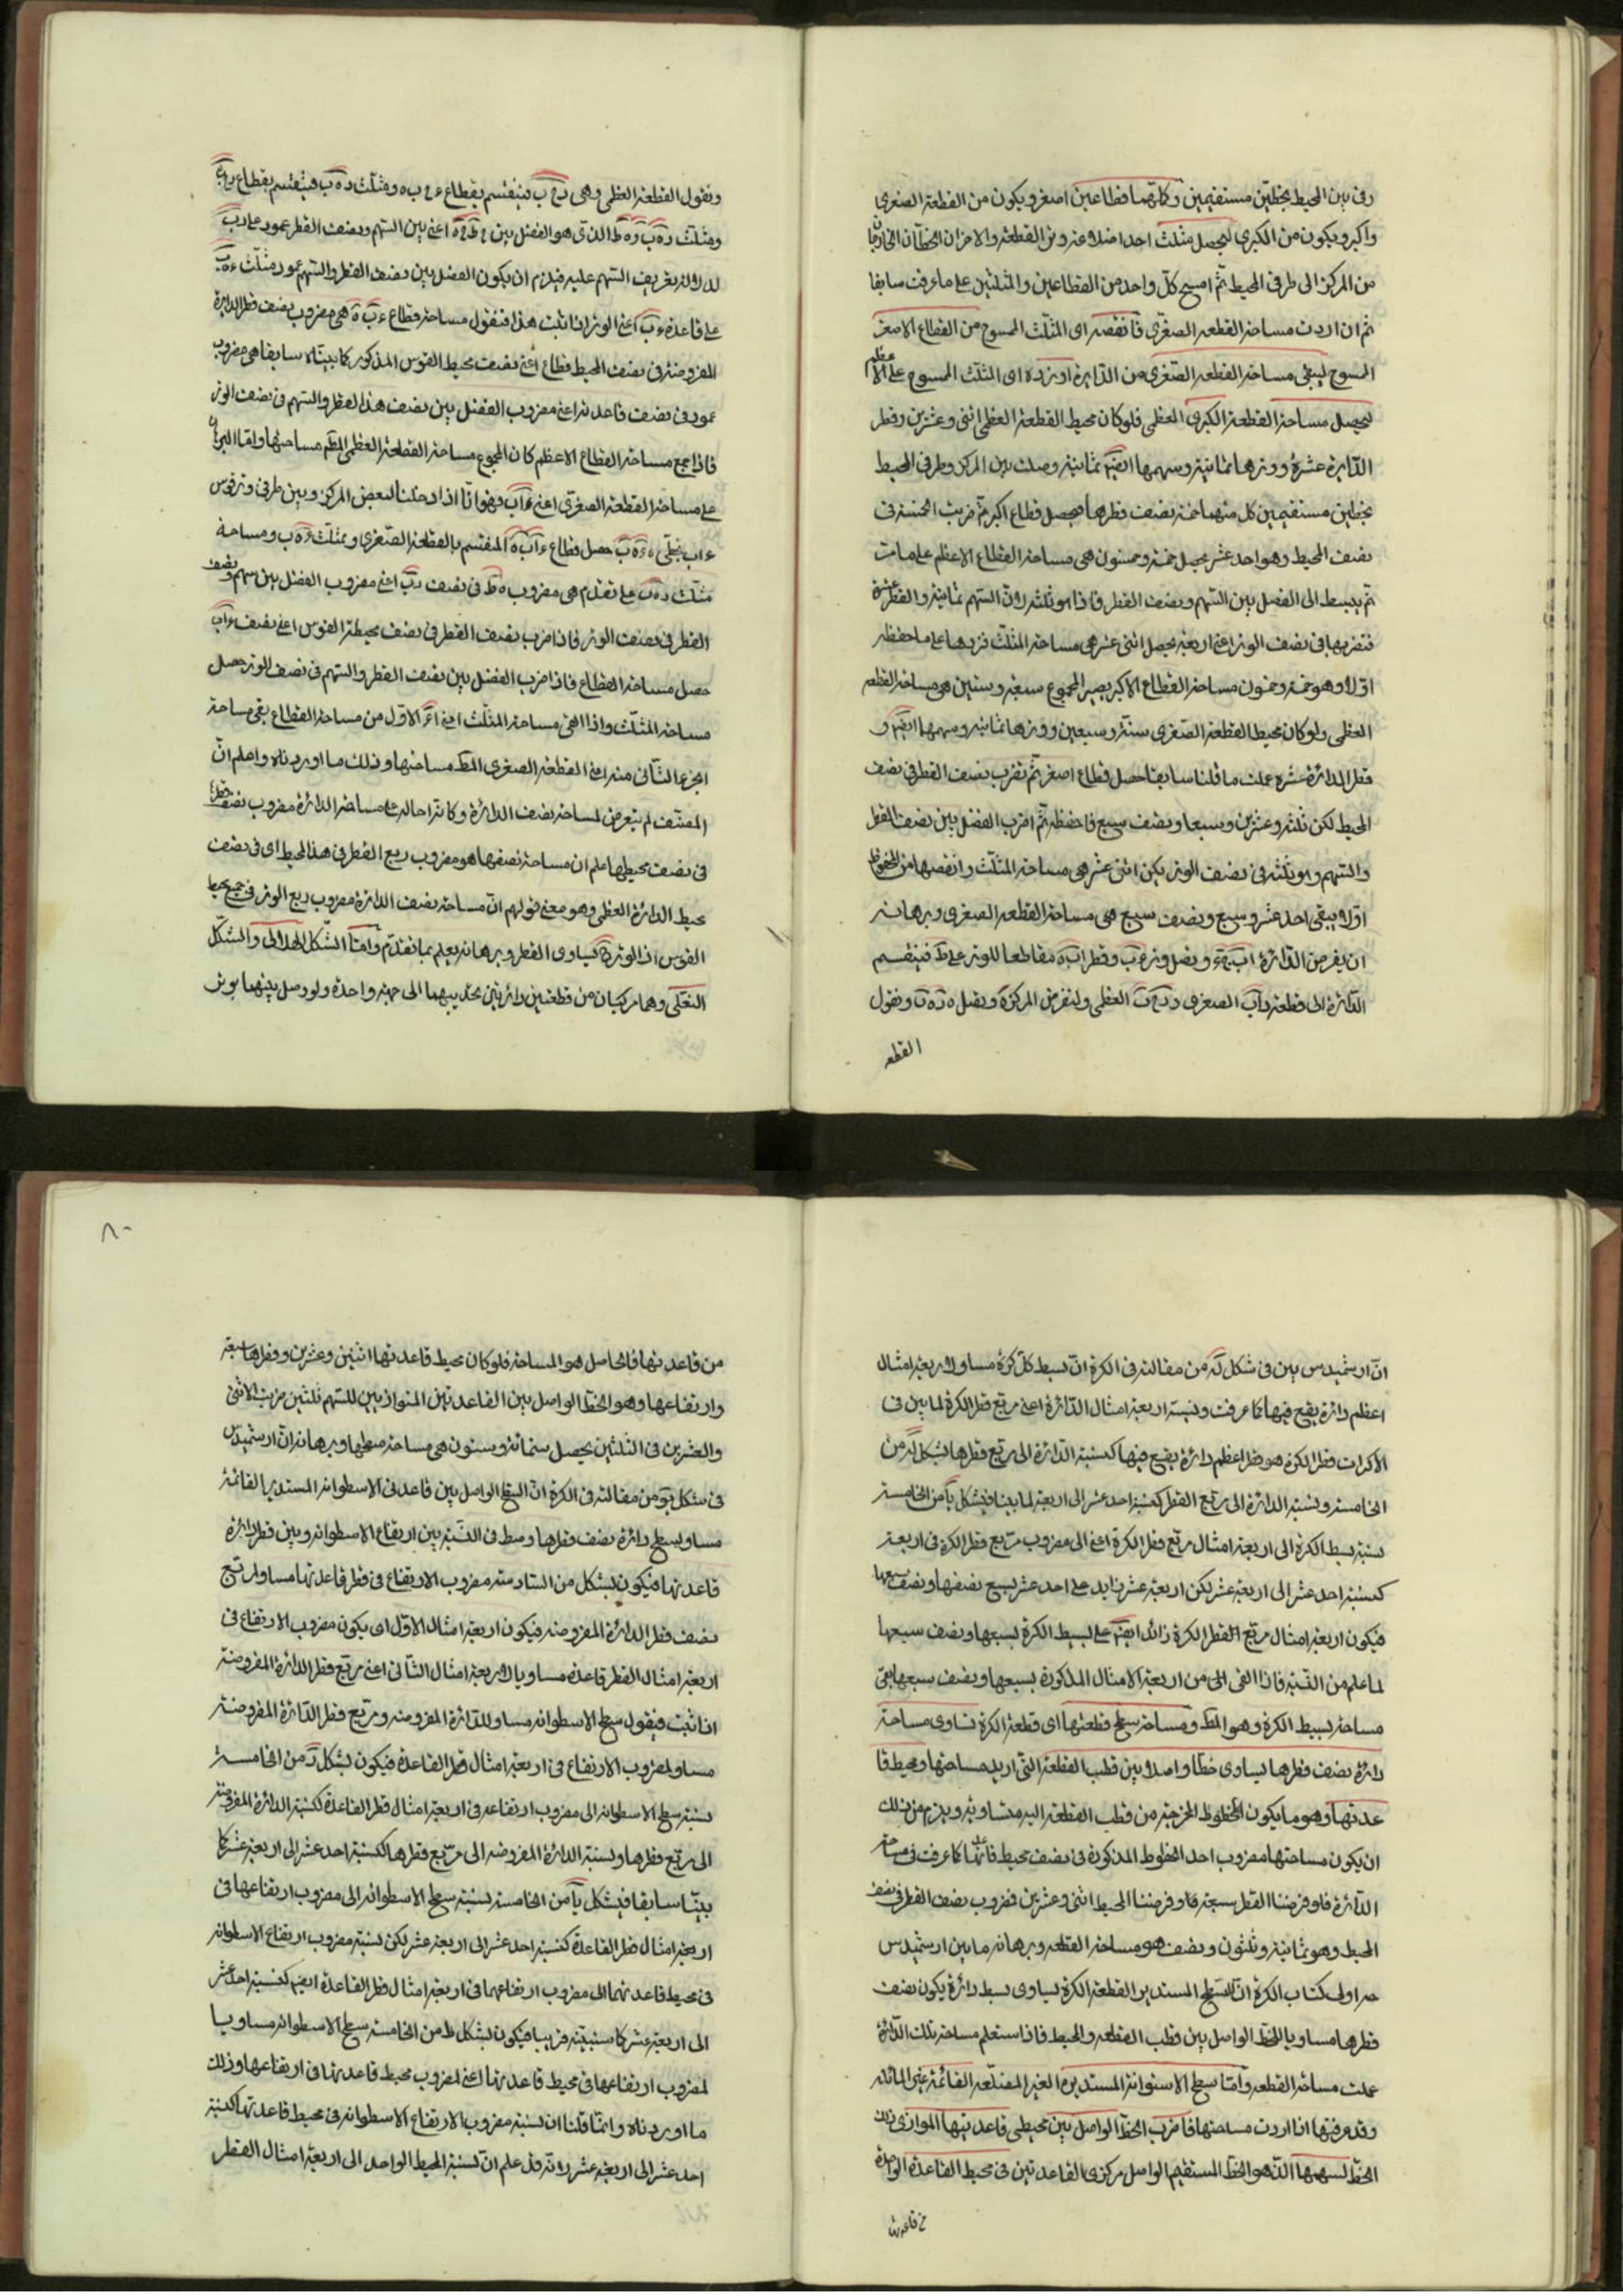 رفى بين المحيط بخطين مستقيمين وكلاهما قطاعين اصغر ويكون من القطعة الصغرى
واكبر ويكون من الكبرى ليحصل مثلث احد اضلاعه وتر القطعة والاخران الخطان الخارجان
من المركز الى طرفى المحيط ثم امسح كل واحد من القطاعين والمثلثين على ما عرفت سابقا
ثم ان اردت مساحة القطعه الصغرى فانقصه اى المثلث الممسوح من القطاع الاصغر
الممسوح ليبقى مساحة القطعه الصغرى من الدايرة او زده اى المثلث الممسوح على الاعظم
ليحصل مساحة القطعة الكبرى العظمى فلو كان محيط القطعة العظمى اثنى وعشرين وقطر
الدايرة عشرة ووترها ثمانية وسهمها ايضا ثمانية وصلت بين المركز وطرفى المحيط
بخطين مستقيمين كل منهما خمسة نصف قطرها فيحصل قطاع اكبر ثم ضربت الخمسة فى
نصف المحيط وهو احد عشر يحصل خمسة وخمسون هى مساحة القطاع الاعظم على ما مرت
ثم الى الفضل بين السهم ونصف القطر فاذا هو ثلثة لان السهم ثمانية والقطر عشرة
فنضربها فى نصف الوتر اعنى اربعة يحصل اثنى عشر هى مساحة المثلث نزيدها على ما حفظه
اولا وهو خمسة وخمسون مساحة القطاع الاكبر يصير المجموع سبعة وستين هى مساحة القطعه
العظمى ولو كان محيط القطعة الصغرى ستة وسبعين ووترها ثمانيه وسهمها ايضا و
قطر الدائرة عشره عملت ما قلنا سابقا حصل قطاع اصغر ثم نضرب نصف القطر فى نصف
المحيط لكن ثلثة وعشرين وسبعا ونصف سبع فاحفظه ثم اضرب الفضل بين نصف القطر
والسهم وهو ثلثة فى نصف الوتر يكن اثنى عشر هى مساحة المثلث وانقصها من المحفوظ
اولا يبقى احد عشر وسبع ونصف سبع هى مساحة القطعه الصغرى وبرهانه
ان يفرض الدائرة ونصل وتر وقطر مقاطعا للوتر على فينقسم
الدائرة الى قطعة الصغرى العظمى ولنفرض المركز ه ونصل ونقول
القطعه
ونقول القطعة العظمى وهى فينقسم بقطاع ومثلث فينقسم بقطاع
ومثلث الذى هو الفضل بين اعنى بين السهم ونصف القطر عمود على
لدلالة تعريف السهم عليه فيلزم ان يكون الفضل بين نصف القطر والسهم عمود مثلث
على قاعدة اعنى الوتر اذا ثبت هذا فنقول مساحة قطاع هى مضروب نصف قطر الدايرة
المفروضة فى نصف المحيط قطاع اعنى نصف محيط القوس المذكور كما بيناه سابقا هى مضروب
عمود فى نصف قاعدته اعنى مضروب الفضل بين نصف هذا القطر والسهم فى نصف الوتر
فاذا جمع مساحة القطاع الاعظم كان المجموع مساحة القطعة العظمى مساحتها واما البرهان
على مساحة القطعة الصغرى اعنى فهو انا اذا وصلنا بعض المركز وبين طرفى وتر قوس
حصل قطاع المنقسم بالقطعة الصغرى ومثلث ومساحة
مثلث على تقدم هى مضروب فى نصف اعنى مضروب الفضل بين سهم ونصف
القطر فى نصف الوتر فاذا ضرب نصف القطر فى نصف محيطة القوس اعنى نصف
حصل مساحة القطاع فاذا ضرب الفضل بين نصف القطر والسهم فى نصف الوتر حصل
مساحة المثلث واذا القى مساحة المثلث الاول من مساحة القطاع بقى مساحة
الجزء الثانى منه اعنى القطعة الصغرى مساحتها وذلك ما اوردناه واعلم ان
المصنف لم يتعرض لمساحة نصف الدائرة وكانه احاله على مساحة الدائرة مضروب نصف قطرها
فى نصف محيطها علم ان مساحة نصفها هو مضروب ربع القطر فى هذا المحيط اى فى نصف
محيط الدائرة العظمى وهو معنى قولهم ان مساحة نصف الدائرة مضروب ربع الوتر فى جميع محيط
القوس اذ الوتر يساوى القطر وبرهانه يعلم بما تقدم واما الشكل الهلالى والشكل
النعلى وهما مركبان من قطعتين دائرتين تحديبهما الى جهة واحدة ولو وصل بينهما بوتر
ان ارشميدس بين فى شكل له من مقالته فى الكرة ان بسيط كل كرة مساو لاربعة امثال
اعظم دائرة يقع فيها كما عرفت ونسبة اربعة امثال الدائرة اعنى مربع قطر الكرة لما بين فى
الاكرات قطر الكرة هو قطر اعظم دائرة يقع فيها كنسبة الدائرة الى مربع قطرها بشكل يه من
الخامسة ونسبة الدائرة الى مربع القطر كنسبة احد عشر الى اربعة لما بينا فبشكل يا من الخامسة
نسبة بسيط الكرة الى اربعة امثال مربع قطر الكرة اعنى الى مضروب مربع قطر الكرة فى اربعة
كنسبة احد عشر الى اربعة عشر لكن اربعة عشر زايد على احد عشر بسبع نصفها ونصف سبعها
فيكون اربعة امثال مربع القطر الكرة زائدا ايضا على بسيط الكرة بسبعها ونصف سبعها
لما علم من النسبة فاذا القى الحى من اربعة الامثال المذكورة بسبعها ونصف سبعها بقى
مساحة بسيط الكرة وهو المط ومساحة سطح قطعتها اى قطعة الكرة تساوى مساحة
دائرة نصف قطرها يساوى خطا واصلا بين قطب القطعة التى اريد مساحتها ومحيط قا
عدتها وهو ما يكون الخطوط المخرجة من قطب القطعة اليه متساوية ويلزم من ذلك
ان يكون مساحتها مضروب احد الخطوط المذكورة فى نصف محيط قائما كما عرفت فى مساحة
الدائرة فلو فرضنا القطر سبعة وفرضنا المحيط اثنى وعشرين فمضروب نصف القطر فى نصف
المحيط وهو ثمانية وثلثون ونصف هو مساحة القطعه وبرهانه ما بين ارشميدس
اولى كتاب الكرة ان السطح المستدير القطعة الكرة يساوى بسيط دائرة يكون نصف
قطرها مساويا للخط الواصل بين قطب القطعه والمحيط فاذا استعلم مساحة تلك الدائرة
علمت مساحة القطعه واما سطح الاسنوانة المستديرة الغير المضلعه القائمة غير المائله
وقد عرفتها اذا اردت مساحتها فاضرب الخط الواصل بين محيطى قاعدتيها الموازى ذلك
الخط لسهمها الذى هو الخط المستقيم الواصل مركزى القاعدتين فى محيط القاعدة الواحدة
من قاعدتها
٨٠
من قاعدتها فالحاصل هو المساحة فلو كان محيط قاعدتها اثنين وعشرين وقطرها سبعة
وارتفاعها وهو الخط الواصل بين القاعدتين المتوازيين للسهم ثلثين ضربت الاثنى
والعشرين فى الثلثين يحصل ستمائة وستون هى مساحة سطحها وبرهانه ان ارشميدس
فى شكل من مقالته فى الكرة ان السطح الواصل بين قاعدتى الاسطوانه المستديرة القائمة
مساو لسطح دائرة نصف قطرها وسط فى النسبة بين ارتفاع الاسطوانه وبين قطر دائرة
قاعدتها فيكون بشكل من السادسة مضروب الارتفاع فى قطر قاعدتها مساو لمربع
نصف قطر الدائرة المفروضة فيكون اربعة امثال الاول اى يكون مضروب الارتفاع فى
اربعة امثال القطر قاعدة مساويا لاربعة امثال الثانى اعنى مربع قطر الدائرة المفروضة
اذا ثبت فيقول سطح الاسطوانه مساو للدائرة المفروضه ومربع قطر الدائرة المفروضة
مساو لمضروب الارتفاع فى اربعة امثال قطر القاعدة فيكون بشكل من الخامسة
نسبة سطح الاسطوانه الى مضروب ارتفاعه فى اربعة امثال قطر القاعدة كنسبة الدائرة المفروضة
الى مربع قطرها ونسبة الدائرة المفروضه الى مربع قطرها كنسبة احد عشر الى اربعة عشر كما
بينا سابقا فبشكل يا من الخامسة نسبة سطح الاسطوانه الى مضروب ارتفاعها فى
اربعة امثال قطر القاعدة كنسبة احد عشر الى اربعة عشر لكن نسبة مضروب ارتفاع الاسطوانه
فى محيط قاعدتها الى مضروب ارتفاعها فى اربعة امثال قطر القاعدة ايضا كنسبة احد عشر
الى اربعة عشر كما سنبينه قريبا فيكون بشكل ط من الخامسة سطح الاسطوانه مساويا
لمضروب ارتفاعها فى محيط قاعدتها اعنى لمضروب محيط قاعدتها فى ارتفاعها وذلك
ما اوردناه وانما قلنا ان نسبة مضروب الارتفاع الاسطوانه فى محيط قاعدتها كنسبة
احد عشر الى اربعة عشر لانه قد علم ان نسبة المحيط الواحد الى اربعة امثال القطر